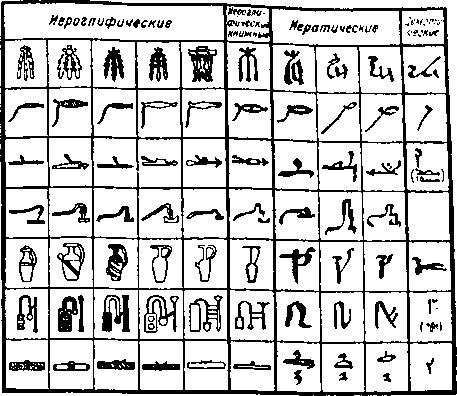 Иероглифические
Иерогли-
фические
книжные
Иератические
Демоти-
ческие